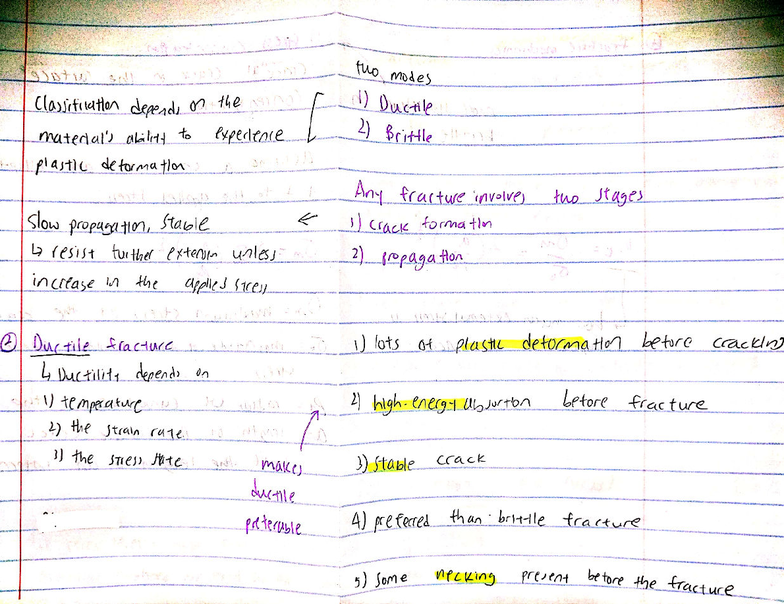 two modes
Classification depends on the
1) Ductile
material's ability to experience
2) Brittle
plastic deformation
Any fracture involves two stages
slow propagation, stable
1) crack formation
↳ resist further extension unless
2) propagation
increase in the applied stress
② Ductile fracture
1) lots of plastic deformation before cracking
↳ Ductility depends on
1) temperature
2) high-energy absorption before fracture
2) the strain rate
3) the stress state
makes
3) stable crack
ductile
preferable
4) preferred than brittle fracture
5) Some necking present before the fracture